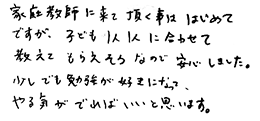 家庭教師に来て頂く事ははじめて
ですが、子ども1人1人に合わせて
教えてもらえそうなので安心しました。
少しでも勉強が好きになって、
やる気がでればいいと思います。